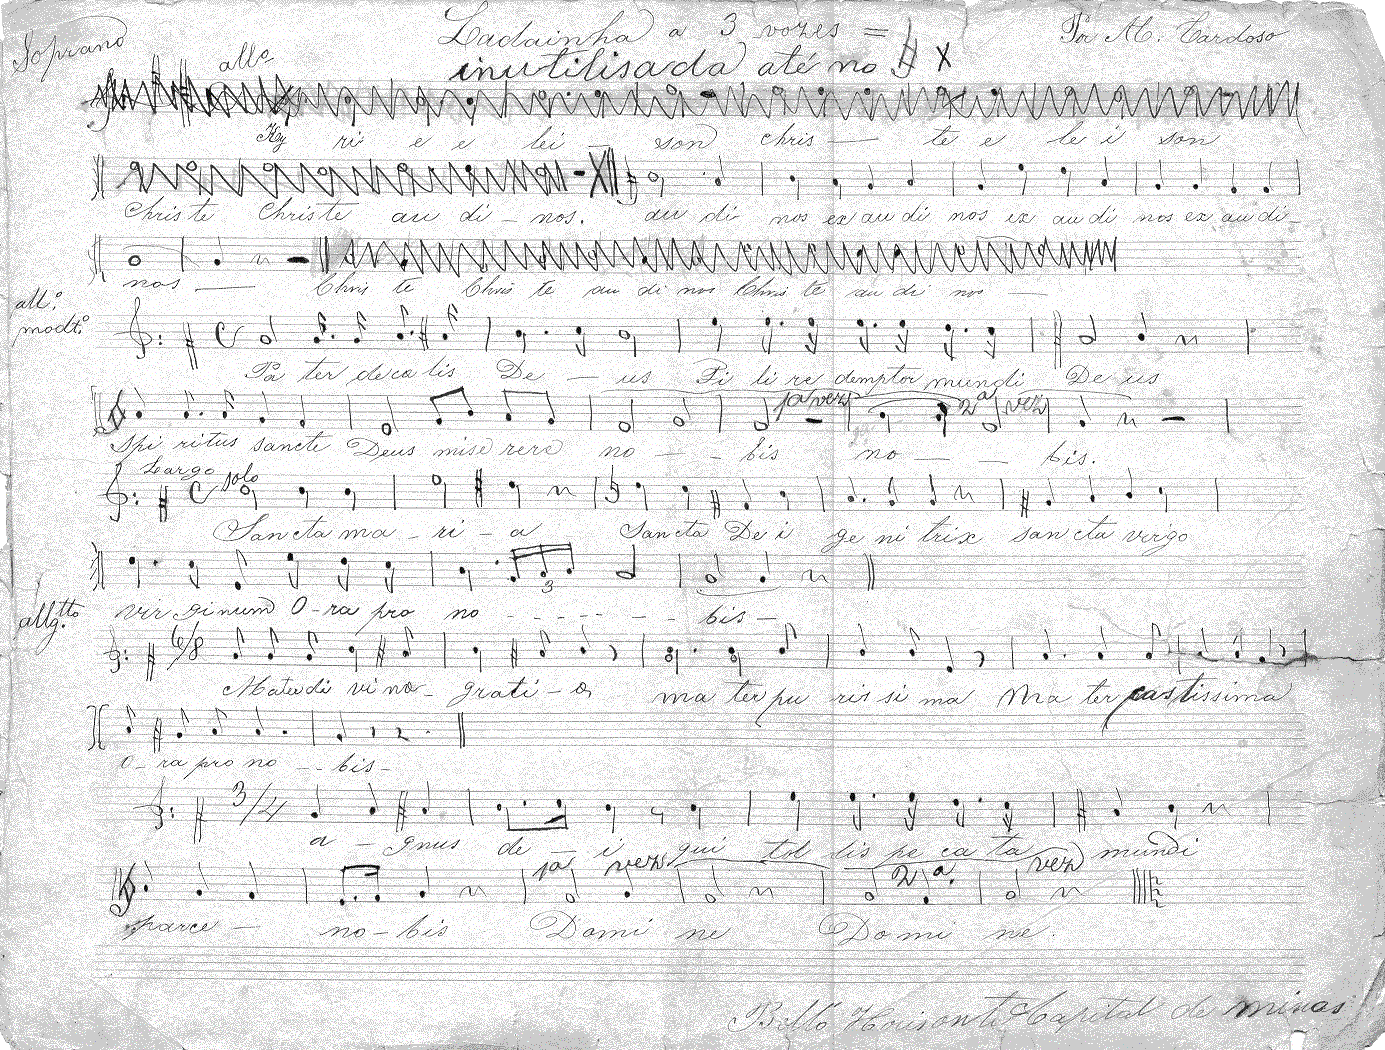 Soprano Ladainha a 3 vozes = Por M. Cardoso
inutilisada até no X
allo
Ky ri e e lei – son chris – te e le i son
Christe Christe au di – nos. au di nos ex au di nos ex au di nos ex au di –
nos Chris te Chris te au di nos Chris te au di nos
all.º modt.º
Pa ter de cœ lis De – us Fi li re demptor mundi De us
1ª vez 2ª vez
Spi ritus sancte Deus mise rere no – – bis no – – bis.
Largo solo
Sancta ma – ri – a Sancta De i ge ni trix sancta virgo
3
vir ginum O – ra pro no – – – – – – bis –
allg.tto
6/8
Mater di vi na – grati – a ma ter pu ris si ma Ma ter castissima
O – ra pro no – – bis –
3/4
a – gnus de – i qui tol lis pe ca ta mundi
1ª vez 2ª vez
parce – no – bis Domi ne Domi ne.
Bello Horisonte Capital de Minas